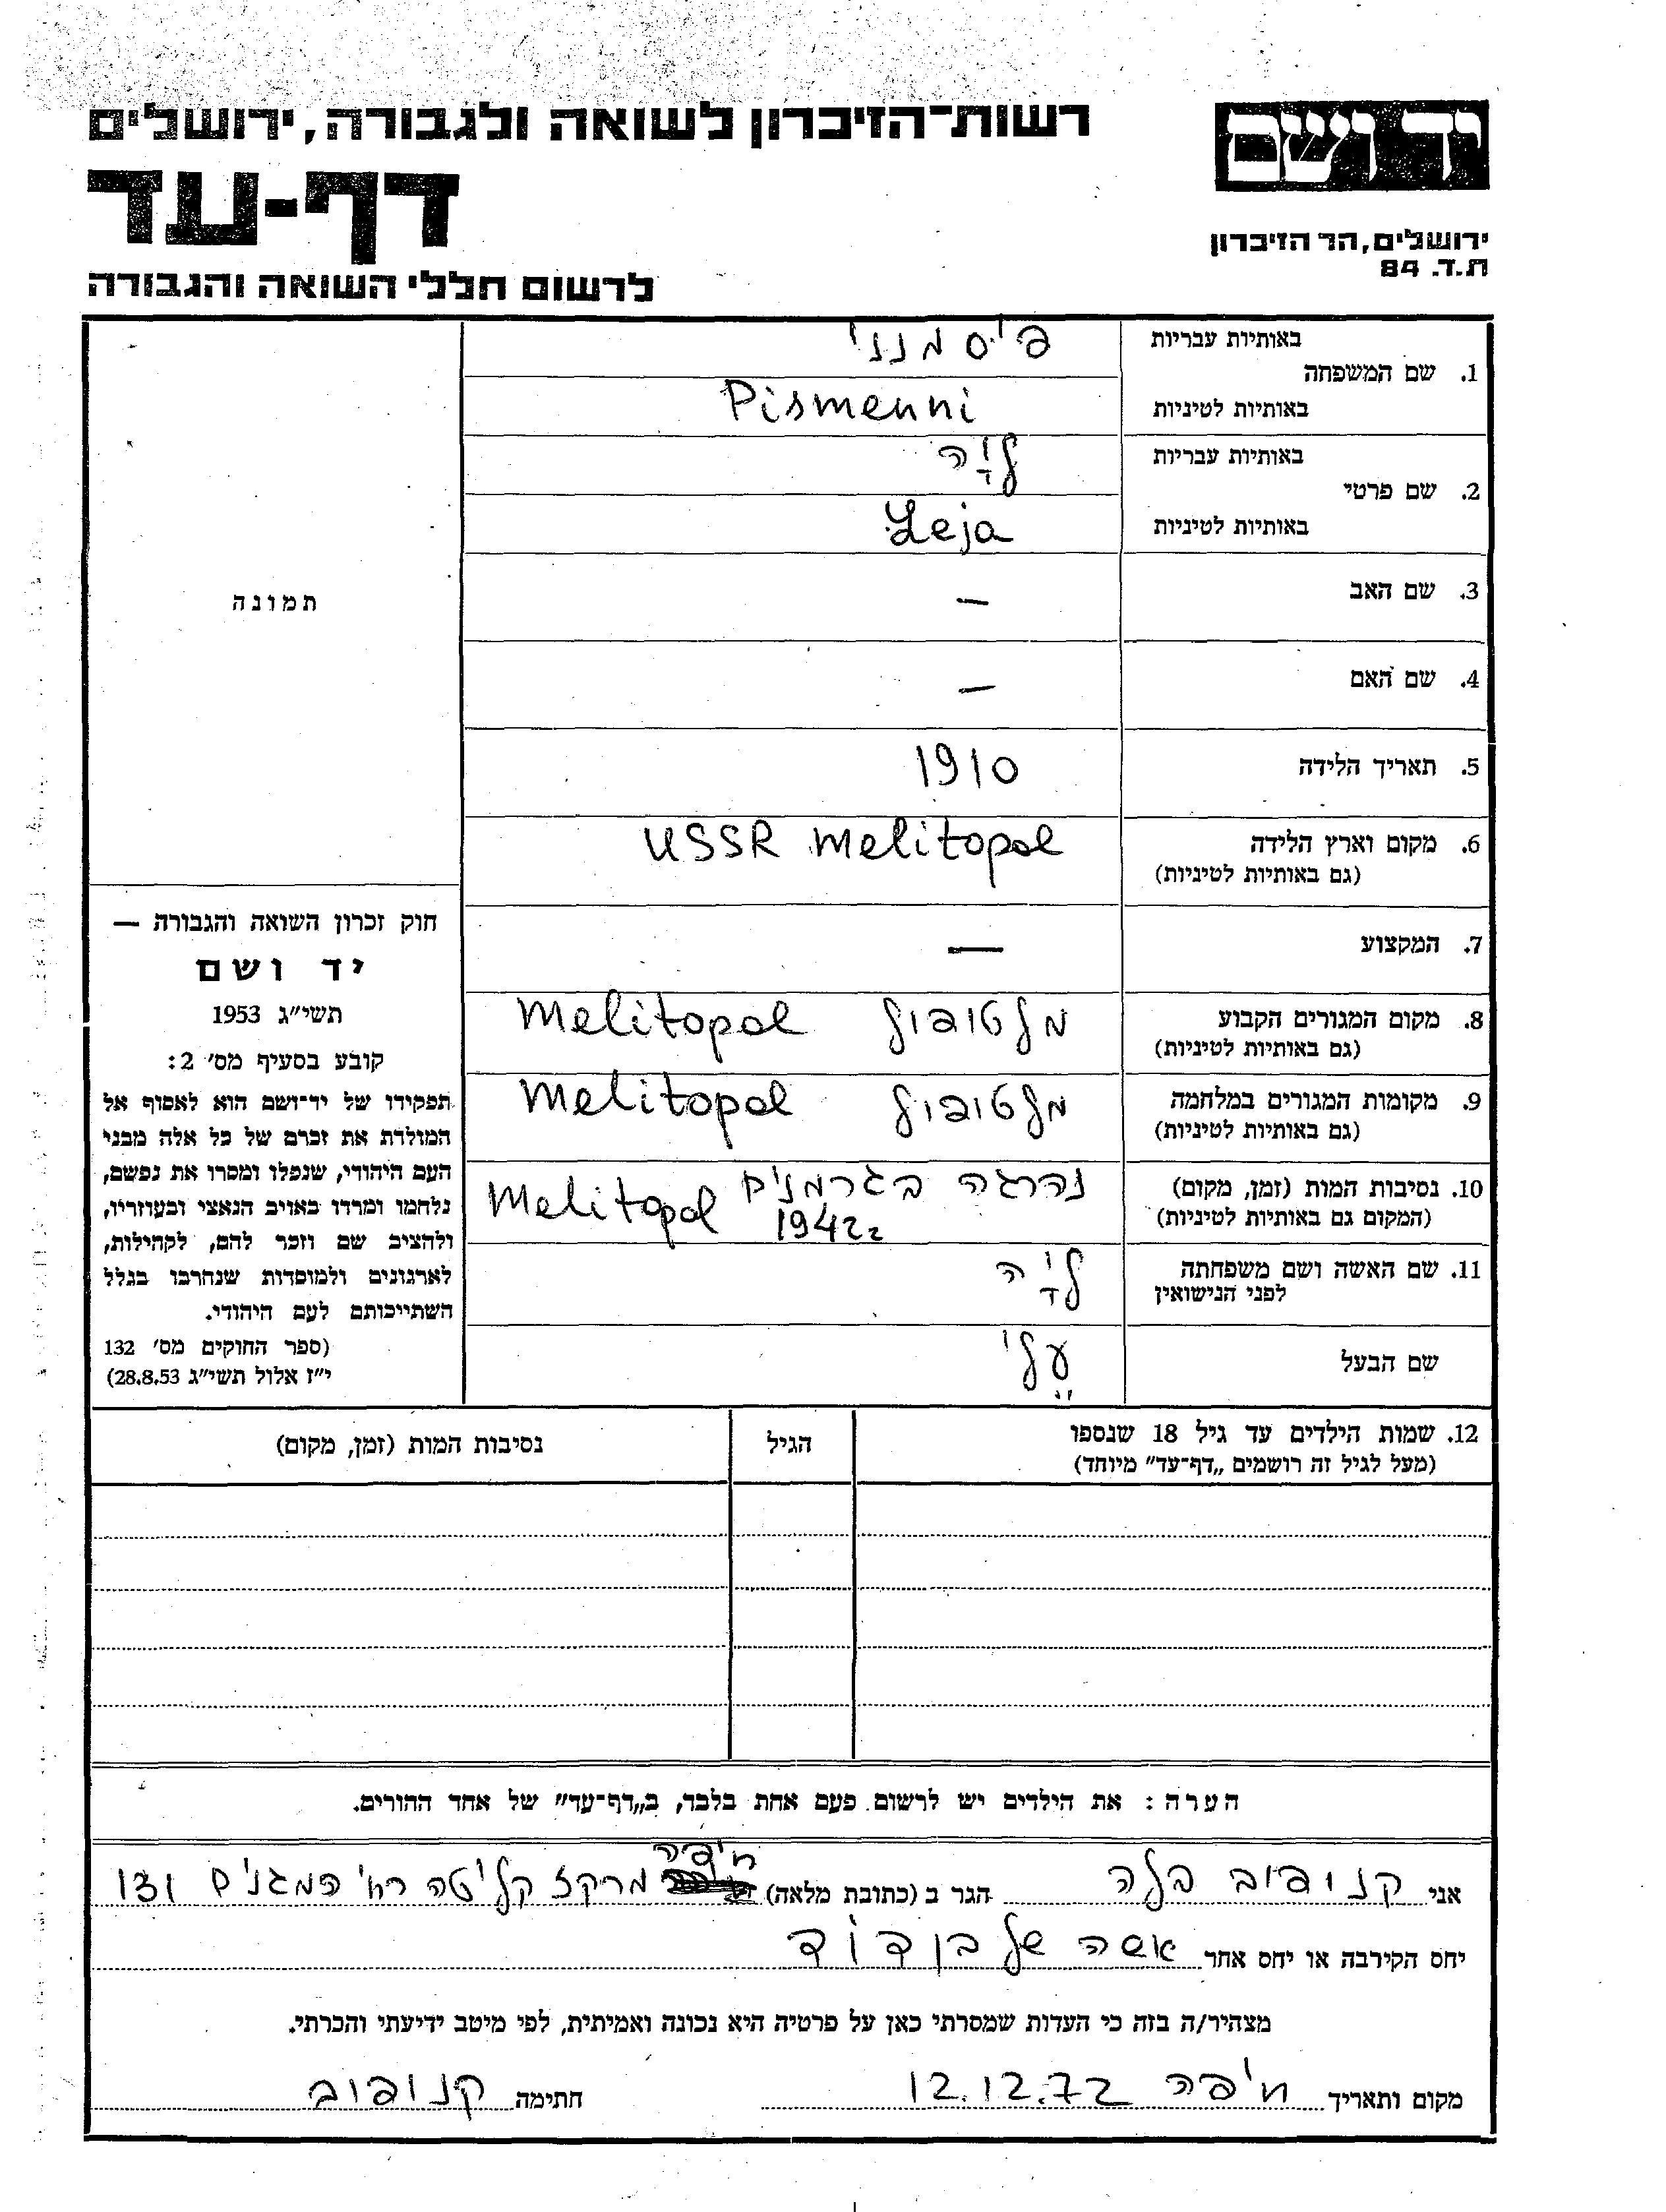 יד ושם
רשות־הזיכרון לשואה ולגבורה, ירושלים
דף-עד
ירושלים, הר הזיכרון
ת.ד. 84
לרשום חללי השואה והגבורה
באותיות עבריות פיסמנני
1. שם המשפחה
באותיות לטיניות Pismenni
באותיות עבריות ליה
2. שם פרטי
באותיות לטיניות Leja
3. שם האב –
4. שם האם –
5. תאריך הלידה 1910
6. מקום וארץ הלידה USSR Melitopol
(גם באותיות לטיניות)
7. המקצוע —
8. מקום המגורים הקבוע מלטופול Melitopol
(גם באותיות לטיניות)
9. מקומות המגורים במלחמה מלטופול Melitopol
(גם באותיות לטיניות)
10. נסיבות המות (זמן, מקום) נהרגה בגרמנים Melitopol
(המקום גם באותיות לטיניות) 1942г
11. שם האשה ושם משפחתה ליה
לפני הנישואין
שם הבעל עלי
תמונה
חוק זכרון השואה והגבורה —
יד ושם
תשי״ג 1953
קובע בסעיף מס׳ 2:
תפקידו של יד־ושם הוא לאסוף אל
המולדת את זכרם של כל אלה מבני
העם היהודי, שנפלו ומסרו את נפשם,
נלחמו ומרדו באויב הנאצי ובעוזריו,
ולהציב שם וזכר להם, לקהילות,
לארגונים ולמוסדות שנחרבו בגלל
השתייכותם לעם היהודי.
(ספר החוקים מס׳ 132
י״ז אלול תשי״ג 28.8.53)
12. שמות הילדים עד גיל 18 שנספו הגיל נסיבות המות (זמן, מקום)
(מעל לגיל זה רושמים „דף־עד״ מיוחד)
הערה: את הילדים יש לרשום פעם אחת בלבד, ב„דף־עד״ של אחד ההורים.
אני קנופוב בלה הגר ב (כתובת מלאה) חיפה מרקז קליטה רח׳ המגנים 131
יחס הקירבה או יחס אחר אשה של בן דוד
מצהיר/ה בזה כי העדות שמסרתי כאן על פרטיה היא נכונה ואמיתית, לפי מיטב ידיעתי והכרתי.
מקום ותאריך חיפה 12.12.72 חתימה קנופוב